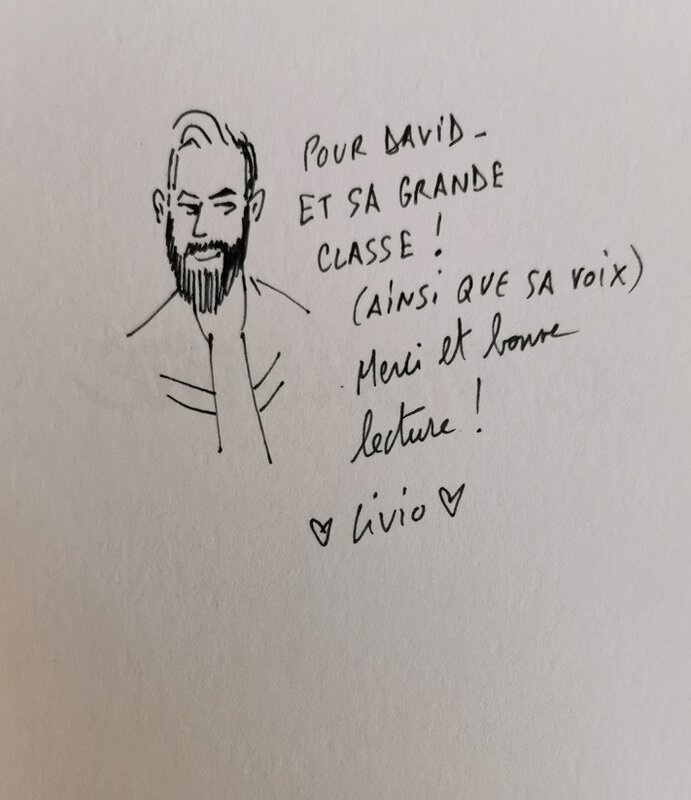 POUR DAVID -
ET SA GRANDE
CLASSE !
(AINSI QUE SA VOIX)
Merci et bonne
lecture !
♥ Livio ♥